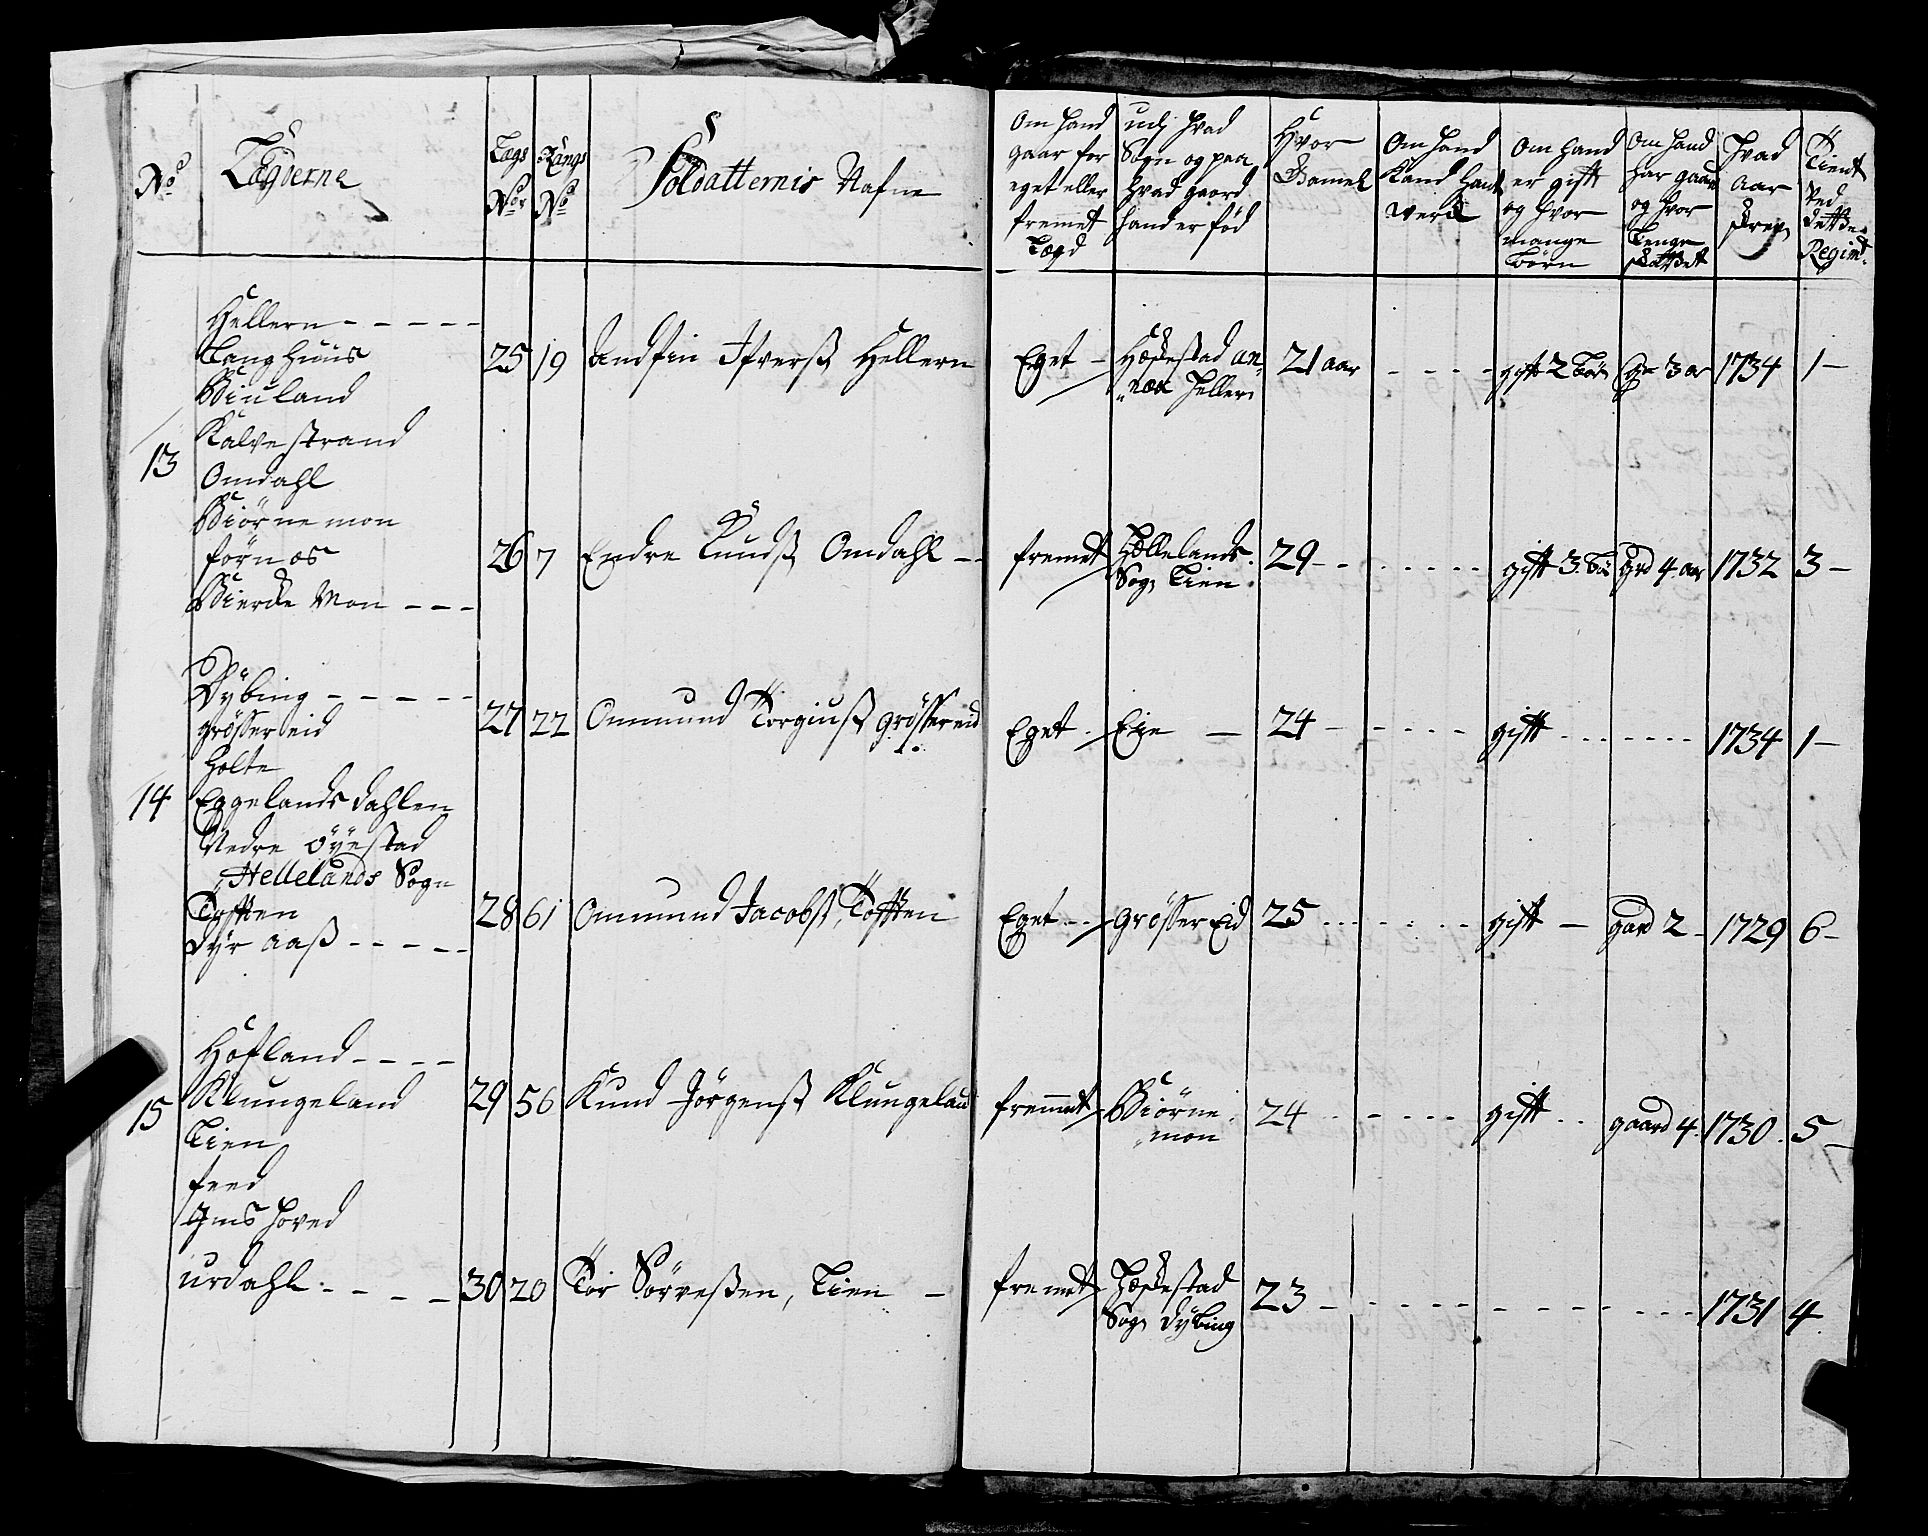 No
Lægderne
Lægs
No
Rangs
No
Soldatternis Nafne
Om hand
gaar for
eget eller
fremet
Lægd
udj hvad
Sogn og paa
hvad gaard
hand er fød
Hvor
Gamel
Om hand
Kand Hand
werck
Om hand
er gift
og hvor
mange
Børn
Om hand
har gaard
og hvor
Lenge
Hvad
aar
Tient
ved
dette
Regim.
13
Hellern - - - - -
Lang huus
Biuland
Kalvestrand
Omdahl
Biørnemon
førnes
Biercke Mon - - -
25 19 Andfin Ifverß Hellern
Eget - Heskestad an-
nex Heller
21 aar - - - - gift 2 Børn 3 ar 1734 1 -
26 7 Endre Knudß Omdahl - -
fremet Hellelands
Sogn Lien
29 - - - - - gift 3. Bø grd 4 aar 1732 3 -
14
Dybing - - - - -
grøsser eid
Holte
Eggelandsdahlen
Nedre Öyestad
Hellelands Sogn
Tofften
Dyr aaß - - - - -
27 22 Ommund Torgiuß grøssereid
Eget - Eie - 24 - - - - - gift - - - - - 1734 1 -
28 61 Ommund Jacobß, Tofften
Eget - grøsser Eid 25 - - - - gift - gard 2 - 1729 6 -
15
Høfland - - - -
Klungeland
Lien
feed
Gms hoved
urdahl - - - -
29 56 Knud Jørgenß Klungeland
fremmet Biørne
mon
24 - - - - gift - - gaard 4. 1730. 5 -
30 20 Tor Sørreßen, Lien -
fremet Heskestad
Sogn Dybing
23 - - - - - - - - - 1731 4